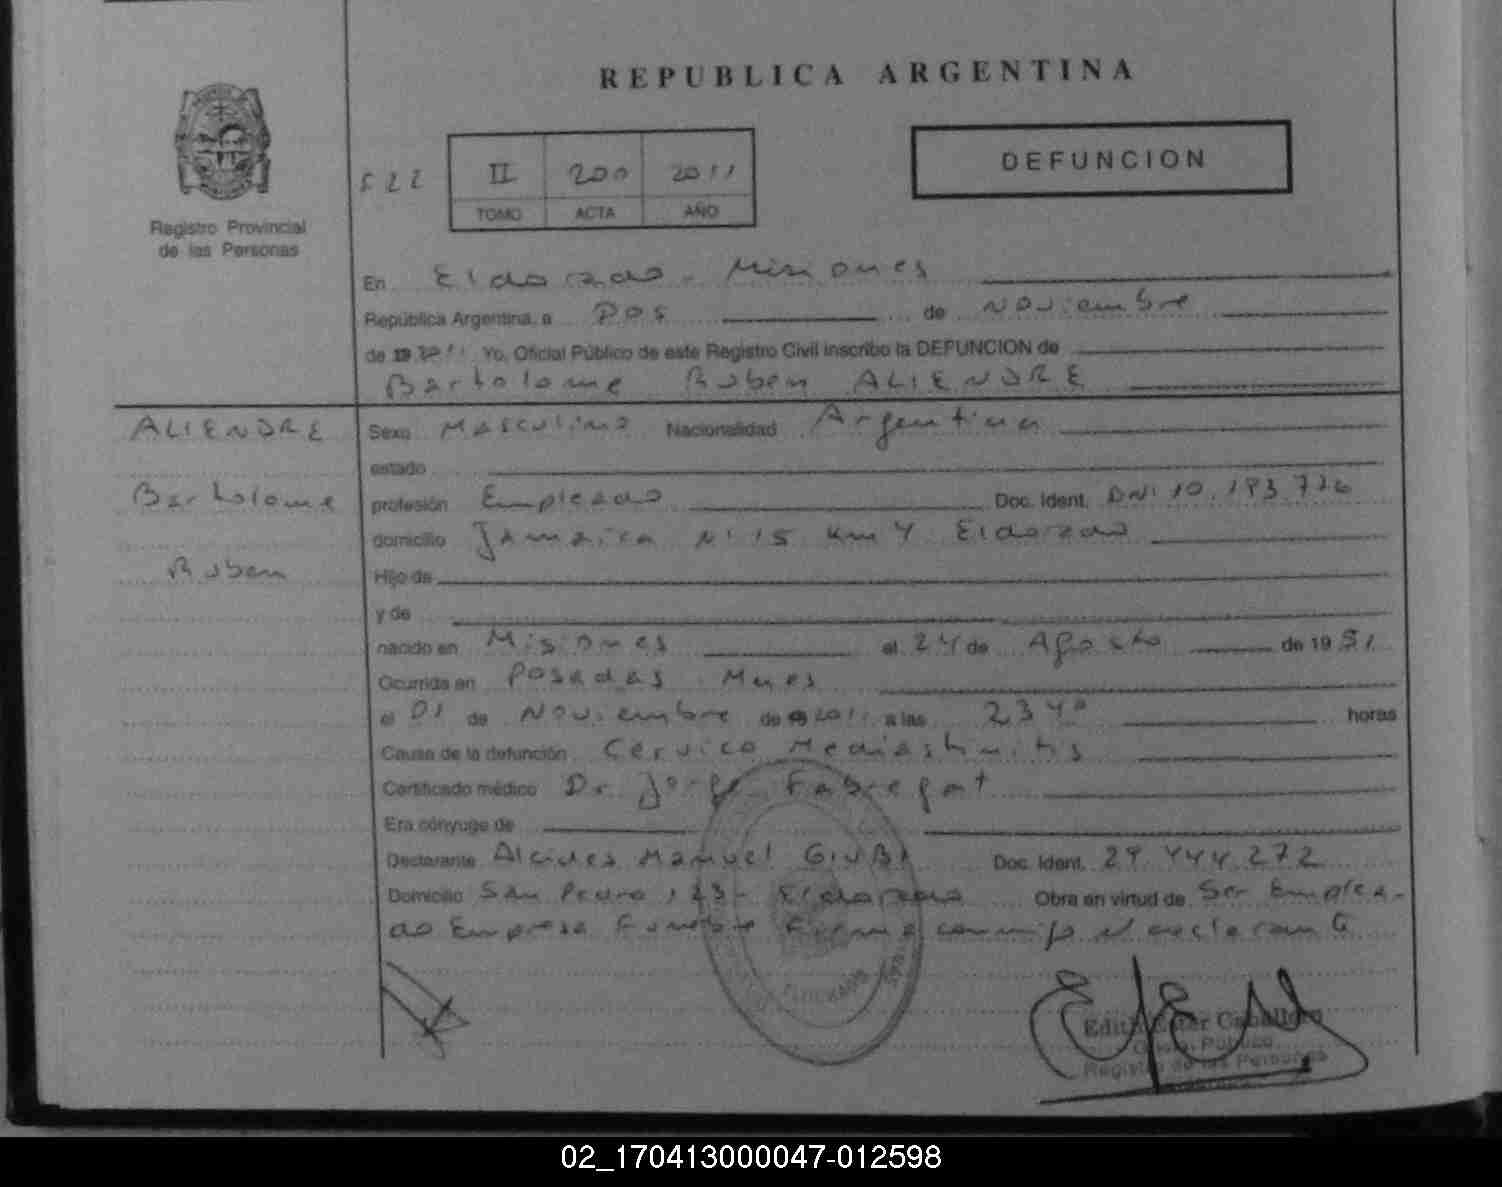 REPUBLICA ARGENTINA
Registro Provincial
de las Personas
522
II 200 2011
TOMO ACTA AÑO
DEFUNCION
En Eldorado - Misiones
República Argentina, a Dos de Noviembre
de 19 2011 Yo, Oficial Público de este Registro Civil inscribo la DEFUNCION de
Bartolome Ruben ALIENDRE
ALIENDRE
Bartolome
Ruben
Sexo Masculino Nacionalidad Argentina
estado
profesión Empleado Doc. Ident. DNI 10.193.776
domicilio Jamaica N° 15 Km 4 Eldorado
Hijo de
y de
nacido en Misiones el 24 de Agosto de 1951
Ocurrida en Posadas Mnes
el 01 de Noviembre de 2011 a las 23 40 horas
Causa de la defunción Cervico Mediastinitis
Certificado médico Dr. Jorge Fabregat
Era cónyuge de
Declarante Alcides Manuel GIUBI Doc. Ident. 29.444.272
Domicilio San Pedro 123 - Eldorado Obra en virtud de Ser Emplea-
do Empresa Funebre Firma conmigo el declarante
ELDORADO
Edith Ester Caballero
Oficial Público
Registro de las Personas
02_170413000047-012598